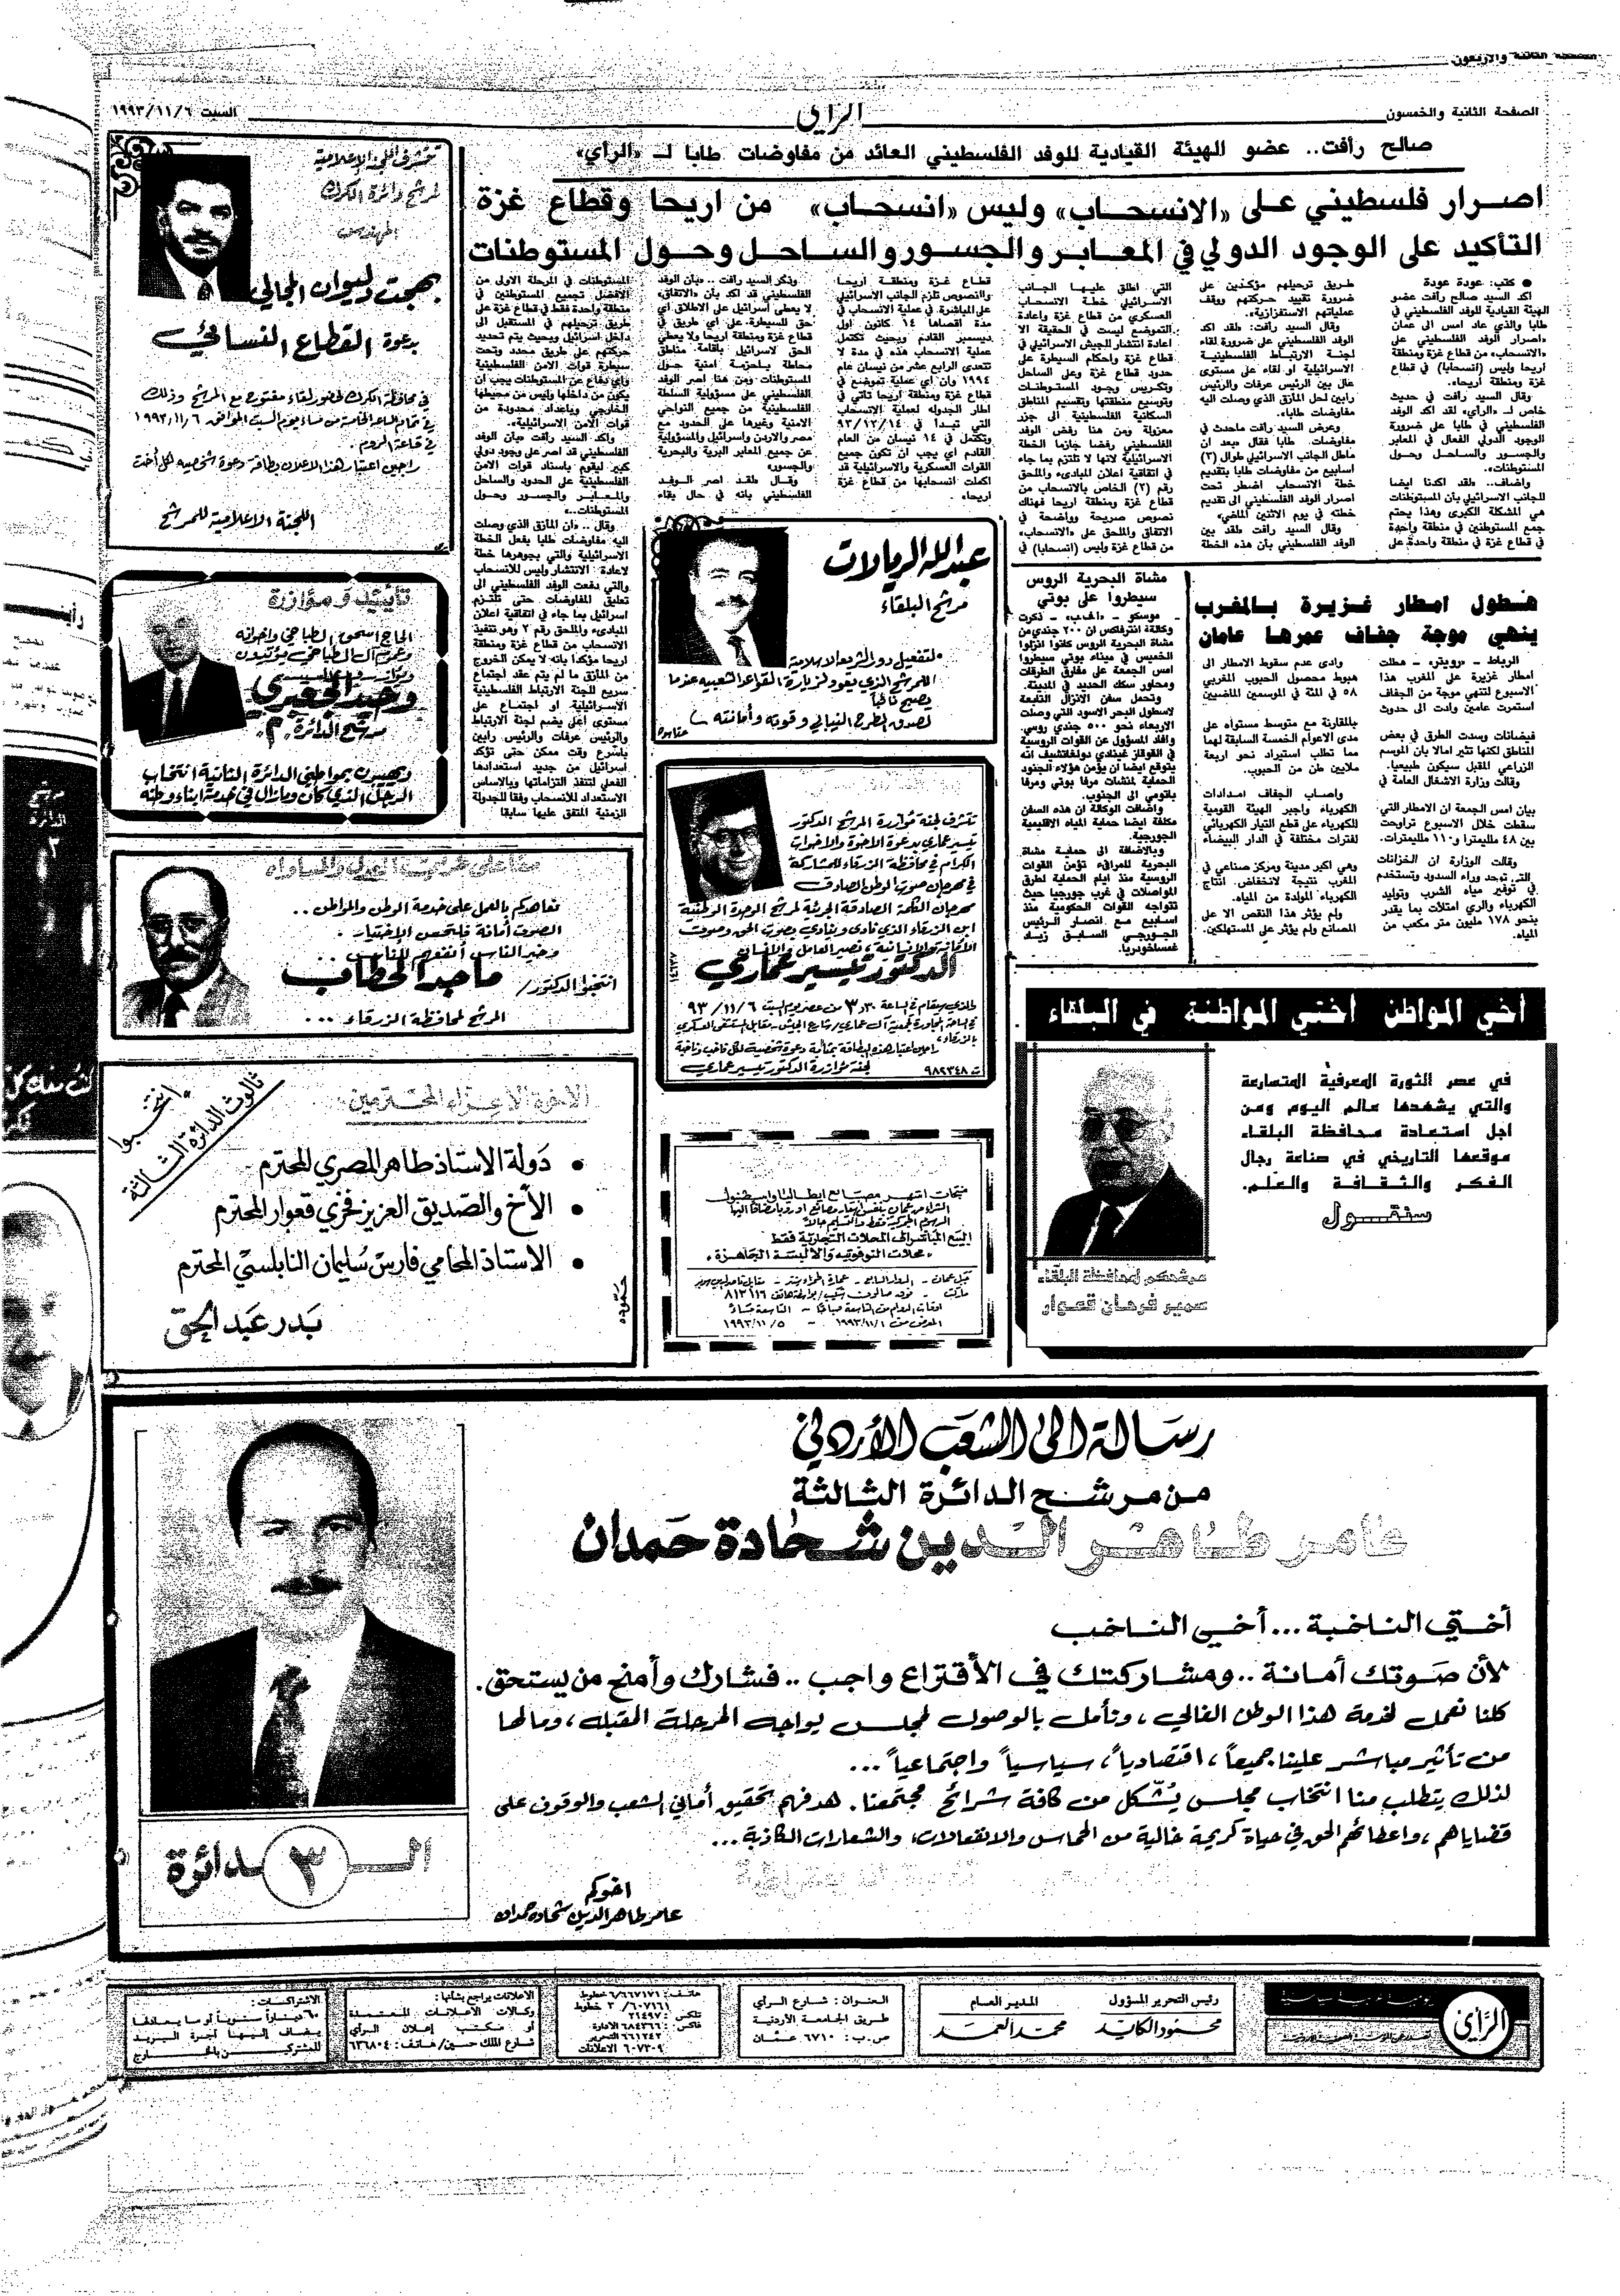 الصفحة الثانية والخمسون
الرأي
السبت ١٩٩٣/١١/٦
صالح رأفت.. عضو الهيئة القيادية للوفد الفلسطيني العائد من مفاوضات طابا لـ «الرأي»
اصرار فلسطيني على «الإنسحاب» وليس «انسحاب» من اريحا وقطاع غزة
التأكيد على الوجود الدولي في المعابر والجسور والساحل وحول المستوطنات
● كتب: عودة عودة
اكد السيد صالح رأفت عضو
الهيئة القيادية للوفد الفلسطيني في
طابا والذي عاد امس الى عمان
«اصرار الوفد الفلسطيني على
«الانسحاب» من قطاع غزة ومنطقة
اريحا وليس (انسحابا) في قطاع
غزة ومنطقة اريحا».
وقال السيد رأفت في حديث
خاص لـ «الرأي» لقد اكد الوفد
الفلسطيني في طابا على ضرورة
الوجود الدولي الفعال في المعابر
والجسور والساحل وحول
المستوطنات».
واضاف.. «لقد اكدنا ايضا
للجانب الاسرائيلي بأن المستوطنات
هي المشكلة الكبرى وهذا يحتم
جمع المستوطنين في منطقة واحدة
في قطاع غزة في منطقة واحدة على
طريق ترحيلهم مؤكدين على
ضرورة تقييد حركتهم ووقف
عملياتهم الاستفزازية».
وقال السيد رأفت: «لقد اكد
الوفد الفلسطيني على ضرورة لقاء
لجنة الارتباط الفلسطينية
الاسرائيلية او لقاء على مستوى
عال بين الرئيس عرفات والرئيس
رابين لحل المأزق الذي وصلت اليه
مفاوضات طابا».
وعرض السيد رأفت ماحدث في
مفاوضات طابا فقال «بعد ان
ماطل الجانب الاسرائيلي طوال (٣)
اسابيع من مفاوضات طابا بتقديم
خطة الانسحاب اضطر تحت
اصرار الوفد الفلسطيني الى تقديم
خطته في يوم الاثنين الماضي»
وقال السيد رأفت «لقد بين
الوفد الفلسطيني بأن هذه الخطة
التي اطلق عليها الجانب
الاسرائيلي خطة الانسحاب
العسكري من قطاع غزة واعادة
التموضع ليست في الحقيقة الا
اعادة انتشار للجيش الاسرائيلي في
قطاع غزة واحكام السيطرة على
حدود قطاع غزة وعلى الساحل
وتكريس وجود المستوطنات
وتوسيع منطقتها وتقسيم المناطق
السكانية الفلسطينية الى جزر
معزولة ومن هنا رفض الوفد
الفلسطيني رفضا جازما الخطة
الاسرائيلية لانها لا تلتزم بما جاء
في اتفاقية اعلان المبادىء والملحق
رقم (٢) الخاص بالانسحاب من
قطاع غزة ومنطقة اريحا فهناك
نصوص صريحة وواضحة في
الاتفاق والملحق على «الانسحاب»
من قطاع غزة وليس (انسحابا) في
قطاع غزة ومنطقة اريحا
والنصوص تلزم الجانب الاسرائيلي
على المباشرة في عملية الانسحاب في
مدة اقصاها ١٤ كانون اول
ديسمبر القادم وبحيث تكتمل
عملية الانسحاب هذه في مدة لا
تتعدى الرابع عشر من نيسان عام
١٩٩٤ وان أي عملية تموضع في
قطاع غزة ومنطقة اريحا تأتي في
اطار الجدولة لعملية الانسحاب
التي تبدأ في ٩٣/١٢/١٤
وتكتمل في ١٤ نيسان من العام
القادم أي يجب ان تكون جميع
القوات العسكرية والاسرائيلية قد
اكملت انسحابها من قطاع غزة
اريحا».
وذكر السيد رأفت .. «بأن الوفد
الفلسطيني قد اكد بأن «الاتفاق»
لا يعطي اسرائيل على الاطلاق أي
حق للسيطرة على أي طريق في
قطاع غزة ومنطقة اريحا ولا يعطي
الحق لاسرائيل باقامة مناطق
محاطة بأحزمة امنية حول
المستوطنات ومن هنا اصر الوفد
الفلسطيني على مسؤولية السلطة
الفلسطينية من جميع النواحي
الامنية وغيرها على الحدود مع
مصر والاردن واسرائيل والمسؤولية
عن جميع المعابر البرية والبحرية
والجسور»
وقال «لقد اصر الوفد
الفلسطيني بانه في حال بقاء
المستوطنات في المرحلة الاولى من
الافضل تجميع المستوطنين في
منطقة واحدة فقط في قطاع غزة على
طريق ترحيلهم في المستقبل الى
داخل اسرائيل وبحيث يتم تحديد
حركتهم على طريق محدد وتحت
سيطرة قوات الامن الفلسطينية
وأي دفاع عن المستوطنات يجب ان
يكون من داخلها وليس من محيطها
الخارجي وباعداد محدودة من
قوات الامن الاسرائيلية».
واكد السيد رأفت «بأن الوفد
الفلسطيني قد اصر على وجود دولي
كبير ليقوم باسناد قوات الامن
الفلسطينية على الحدود والساحل
والمعابر والجسور وحول
المستوطنات..»
وقال .. «ان المأزق الذي وصلت
اليه مفاوضات طابا بفعل الخطة
الاسرائيلية والتي بجوهرها خطة
لاعادة الانتشار وليس للانسحاب
والتي دفعت الوفد الفلسطيني الى
تعليق المفاوضات حتى تلتزم
اسرائيل بما جاء في اتفاقية اعلان
المبادىء والملحق رقم ٢ وهو تنفيذ
الانسحاب من قطاع غزة ومنطقة
اريحا مؤكدا بانه لا يمكن الخروج
من المأزق ما لم يتم عقد اجتماع
سريع للجنة الارتباط الفلسطينية
الاسرائيلية او اجتماع على
مستوى اعلى يضم لجنة الارتباط
والرئيس عرفات والرئيس رابين
بأسرع وقت ممكن حتى تؤكد
اسرائيل من جديد استعدادها
الفعلي لتنفذ التزاماتها وبالاساس
الاستعداد للانسحاب وفقا للجدولة
الزمنية المتفق عليها سابقا
هطول امطار غزيرة بالمغرب
ينهي موجة جفاف عمرها عامان
الرباط - «رويتر» - هطلت
امطار غزيرة على المغرب هذا
الاسبوع لتنتهي موجة من الجفاف
استمرت عامين وأدت الى حدوث
فيضانات وسدت الطرق في بعض
المناطق لكنها تثير امالا بأن الموسم
الزراعي المقبل سيكون طبيعيا.
وقالت وزارة الاشغال العامة في
بيان امس الجمعة ان الامطار التي
سقطت خلال الاسبوع تراوحت
بين ٤٨ ملليمترا و١١٠ ملليمترات.
وقالت الوزارة ان الخزانات
التي توجد وراء السدود وتستخدم
في توفير مياه الشرب وتوليد
الكهرباء والري امتلات بما يقدر
بنحو ١٧٨ مليون متر مكعب من
المياه.
وادى عدم سقوط الامطار الى
هبوط محصول الحبوب المغربي
٥٨ في المئة في الموسمين الماضيين
بالمقارنة مع متوسط مستواه على
مدى الاعوام الخمسة السابقة لهما
مما تطلب استيراد نحو اربعة
ملايين طن من الحبوب.
واصاب الجفاف امدادات
الكهرباء واجبر الهيئة القومية
للكهرباء على قطع التيار الكهربائي
لفترات مختلفة في الدار البيضاء
وهي اكبر مدينة ومركز صناعي في
المغرب نتيجة لانخفاض انتاج
الكهرباء المولدة من المياه.
ولم يؤثر هذا النقص الا على
المصانع ولم يؤثر على المستهلكين.
مشاة البحرية الروس
سيطروا على بوتي
موسكو - «اف.ب» - ذكرت
وكالة انترفاكس ان ٢٠٠ جندي من
مشاة البحرية الروس كانوا انزلوا
الخميس في ميناء بوتي سيطروا
امس الجمعة على مفارق الطرقات
ومحاور سكك الحديد في المدينة.
وتحمل سفن الانزال التابعة
لاسطول البحر الاسود التي وصلت
الاربعاء نحو ٥٠٠ جندي روسي.
وافاد المسؤول عن القوات الروسية
في القوقاز غينادي دولغاتشيف انه
يتوقع ايضا ان يؤمن هؤلاء الجنود
الحماية لمنشآت مرفأ بوتي ومرفأ
باتومي الى الجنوب.
واضافت الوكالة ان هذه السفن
مكلفة ايضا حماية المياه الاقليمية
الجورجية.
وبالاضافة الى حماية مشاة
البحرية للمرافىء تؤمن القوات
الروسية منذ ايام الحماية لطرق
المواصلات في غرب جورجيا حيث
تتواجه القوات الحكومية منذ
اسابيع مع انصار الرئيس
الجورجي السابق زياد
غمساخورديا.
تتشرف اللجنة الاعلامية
لمرشح دائرة الكرك
بهجت ديوان المجالي
بدعوة القطاع النسائي
في محافظة الكرك لحضور لقاء مفتوح مع المرشح وذلك
في تمام الساعة الخامسة من مساء يوم السبت الموافق ١٩٩٣/١١/٦
في قاعة الروم
راجين اعتبار هذا الاعلان بطاقة دعوة شخصية لكل أخت
اللجنة الاعلامية للمرشح
عبدالله الرمالات
مرشح البلقاء
لتفعيل دور التشريع الاسلامية
للمرشح الذي يعود لزيارة القواعد الشعبية عندما
يصبح نائباً
لصدق الطرح النيابي وقوته وأمانته
تأييد ومؤازرة
الحاج اسحق الطباخي واخوانه
وعموم آل الطباخي يؤيدون
وحيد الجعبري
مرشح الدائرة م.
ويهيبون بمواطني الدائرة الثانية انتخاب
الرجل الذي كان ومازال في خدمة ابناء وطنه
تتشرف لجنة مؤازرة المرشح الدكتور
تيسير عماري بدعوة الاخوة والاخوات
الكرام في محافظة الزرقاء للمشاركة
في مهرجان صوت الوطن الصادق
مهرجان الكلمة الصادقة الجريئة لمرشح الوحدة الوطنية
ابن الزرقاء الذي نادى وينادي بصوت الحق وصوت
الدكتور تيسير عماري
والذي سيقام في الساعة ٣٫٣٠ من عصر يوم السبت ٩٣/١١/٦
راجين اعتبار هذه البطاقة بمثابة دعوة شخصية لكل ناخب وناخبة
لجنة مؤازرة الدكتور تيسير عماري
ت ٩٨٢٣٤٨
معا على طريق العدل والمساواه
نعاهدكم بالعمل على خدمة الوطن والمواطن ..
الصوت أمانة فلنحسن الإختيار .
وخير الناس أنفعهم للناس ..
انتخبوا الدكتور/ ماجد الخطاب
المرشح لمحافظة الزرقاء ...
أخي المواطن أختي المواطنة في البلقاء
في عصر الثورة المعرفية المتسارعة
والتي يشهدها عالم اليوم ومن
اجل استعادة محافظة البلقاء
موقعها التاريخي في صناعة رجال
الفكر والثقافة والعلم.
سنقول
مرشحكم لمحافظة البلقاء
سمير فرحان قعوار
انتخبوا
ثالوث الدائرة الثالثة
الاخوة الاعزاء المحترمين
● دولة الاستاذ طاهر المصري المحترم
● الأخ والصديق العزيز فخري قعوار المحترم
● الاستاذ المحامي فارس سليمان النابلسي المحترم
بدر عبد الحق
منتجات اشهر مصانع ايطاليا واسطنبول
البيع المباشر الى المحلات التجارية فقط
محلات النوفوتيه والالبسة الجاهزة .
رسالة الى الشعب الأردني
من مرشح الدائرة الثالثة
عامر طاهر الدين شحادة حمدان
أختي الناخبة ... أخي الناخب
لأن صوتك أمانة .. ومشاركتك في الأقتراع واجب .. فشارك وأمنح من يستحق.
كلنا نعمل لخدمة هذا الوطن الغالي ، ونأمل بالوصول لمجلس يواجه المرحلة المقبلة ، ومالها
من تأثير مباشر علينا جميعاً ، اقتصادياً ، سياسياً واجتماعياً ...
لذلك يتطلب منا انتخاب مجلس يُشكل من كافة شرائح مجتمعنا . هدفهم تحقيق أماني الشعب والوقوف على
قضاياهم ، واعطائهم الحق في حياة كريمة خالية من الحماس والانفعالات ، والشعارات الكاذبة ...
اخوكم
عامر طاهر الدين شحاده حمدان
الدائرة ٣
الرأي
يومية عربية سياسية
رئيس التحرير المسؤول
محمود الكايد
المدير العام
محمد العمد
العنوان: شارع الرأي
طريق الجامعة الأردنية
ص.ب: ٦٧١٠ عمّان
هاتف: ٦/٦٦٧١٧١ خطوط
٦٠٧١٦١/ ٣ خطوط
تلكس: ٢١٤٩٧
فاكس: ٦٨٤٣٦٦ الادارة
٦٦١٢٤٢ التحرير
٦٠٧٣٠٩ الاعلانات
الاعلانات يراجع بشأنها:
وكالات الاعلانات المعتمدة
أو مكتب إعلان الرأي
شارع الملك حسين/ هاتف: ٦٣٦٨٠٤
الاشتراكات:
٦٠ ديناراً سنوياً أو ما يعادلها
يضاف إليها أجرة البريد
للمشتركين بالخارج